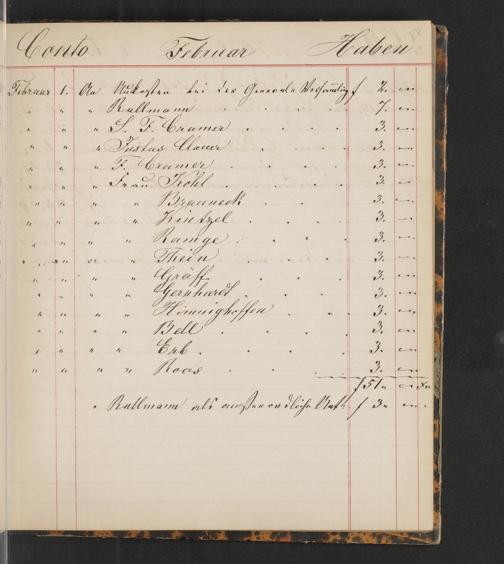 Conto Februar Haben
Februar 1. An Unkosten bei der General Versammlung f 2. "
" " " Rullmann . . . . 7. "
" " " L. F. Cramer . . . . 3. "
" " " Justus Clauer . . . 3. "
" " " F. Cramer . . . . 3. "
" " " Frau Kohl . . . . 3. "
" " " " Brauneck . . 3. "
" " " " Kintzel . . . 3. "
" " " " Ramge . . . 3. "
" " " " Thein . . . . 3. "
" " " " Gräff . . . . 3. "
" " " " Gernhardt . . . 3. "
" " " " Hönnighoffen . . 3. "
" " " " Bell . . . . 3. "
" " " " Erb . . . . 3. "
" " " " Roos . . . . 3. "
f 51. "
" Rullmann als außerordliche f 3. "